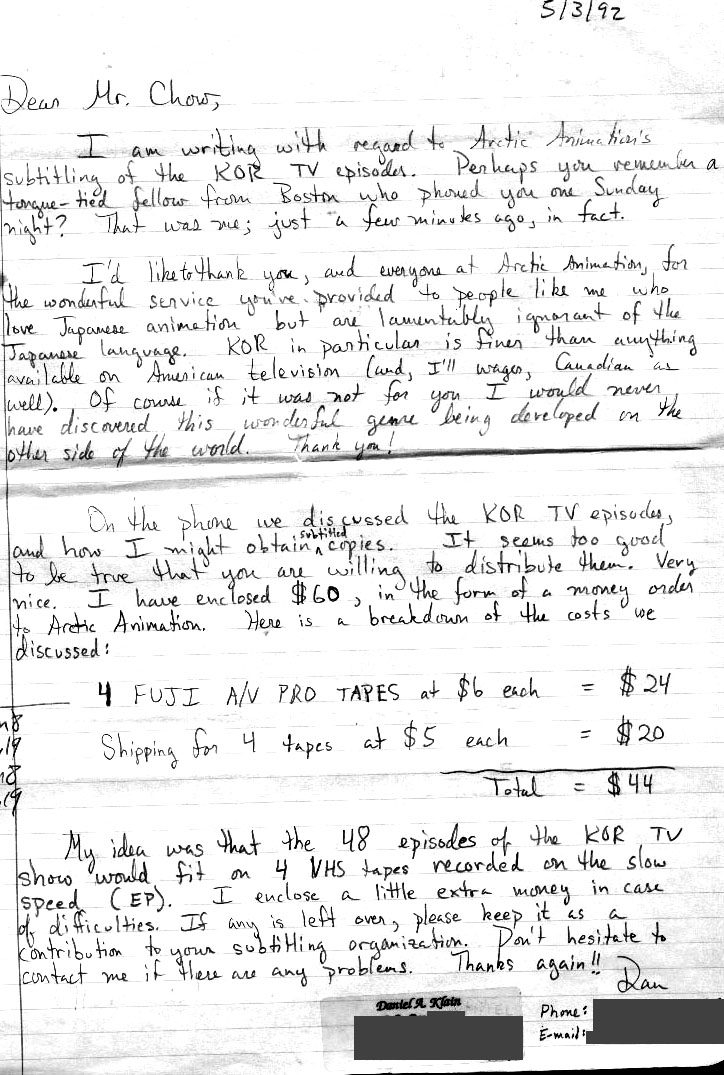 5/3/92
Dear Mr. Chow,
I am writing with regard to Arctic Animation's
subtitling of the KOR TV episodes. Perhaps you remember a
tongue-tied fellow from Boston who phoned you one Sunday
night? That was me; just a few minutes ago, in fact.
I'd like to thank you, and everyone at Arctic Animation, for
the wonderful service you've provided to people like me who
love Japanese animation but are lamentably ignorant of the
Japanese language. KOR in particular is finer than anything
available on American television (and, I'll wager, Canadian as
well). Of course if it was not for you I would never
have discovered this wonderful genre being developed on the
other side of the world. Thank you!
On the phone we discussed the KOR TV episodes,
and how I might obtain subtitled copies. It seems too good
to be true that you are willing to distribute them. Very
nice. I have enclosed $60, in the form of a money order
to Arctic Animation. Here is a breakdown of the costs we
discussed:
4 FUJI A/V PRO TAPES at $6 each = $24
Shipping for 4 tapes at $5 each = $20
Total = $44
My idea was that the 48 episodes of the KOR TV
show would fit on 4 VHS tapes recorded on the slow
speed (EP). I enclose a little extra money in case
of difficulties. If any is left over, please keep it as a
contribution to your subtitling organization. Don't hesitate to
contact me if there are any problems. Thanks again!!
Dan
Daniel A. Klain
Phone:
E-mail: